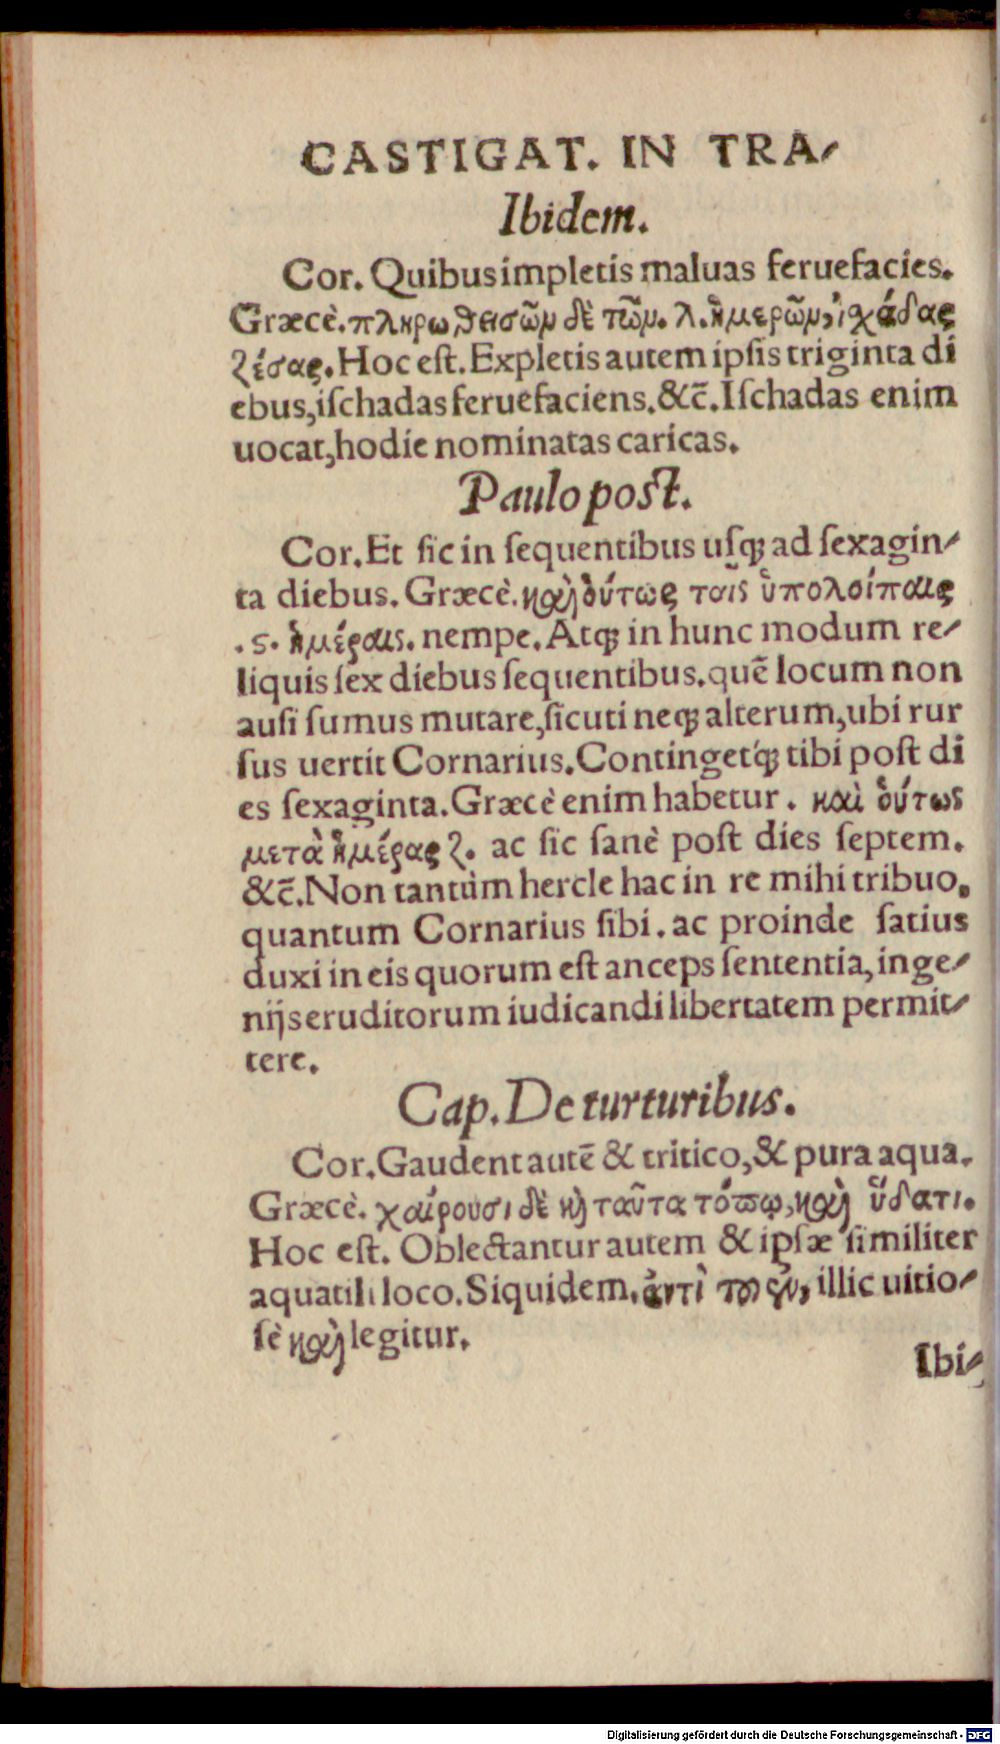 CASTIGAT. IN TRA-
Ibidem.
Cor. Quibus impletis maluas feruefacies.
Græcè. πληρωθεισῶν δὲ τῶν. λ. ἡμερῶν, ἰχάδας
ζέσας. Hoc est. Expletis autem ipsis triginta di
ebus, ischadas feruefaciens. &c̃. Ischadas enim
uocat, hodie nominatas caricas.
Paulo post.
Cor. Et sic in sequentibus usq; ad sexagin-
ta diebus. Græcè. καὶ οὕτως ταῖς ὑπολοίπαις
.ς. ἡμέραις. nempe. Atq; in hunc modum re-
liquis sex diebus sequentibus. quẽ locum non
ausi sumus mutare, sicuti neq; alterum, ubi rur
sus uertit Cornarius. Continget´q; tibi post di
es sexaginta. Græcè enim habetur. καὶ οὕτως
μετὰ ἡμέρας ζ. ac sic sanè post dies septem.
&c̃. Non tantùm hercle hac in re mihi tribuo,
quantum Cornarius sibi. ac proinde satius
duxi in eis quorum est anceps sententia, inge-
nijs eruditorum iudicandi libertatem permit-
tere.
Cap. De turturibus.
Cor. Gaudent autẽ & tritico, & pura aqua.
Græcè. χαίρουσι δὲ κὶ ταῦτα τόπῳ, καὶ ὕδατι.
Hoc est. Oblectantur autem & ipsæ similiter
aquatili loco. Siquidem, ἀντὶ τοῦ ἐν, illic uitio-
sè καὶ legitur.
Ibi-
Digitalisierung gefördert durch die Deutsche Forschungsgemeinschaft - DFG